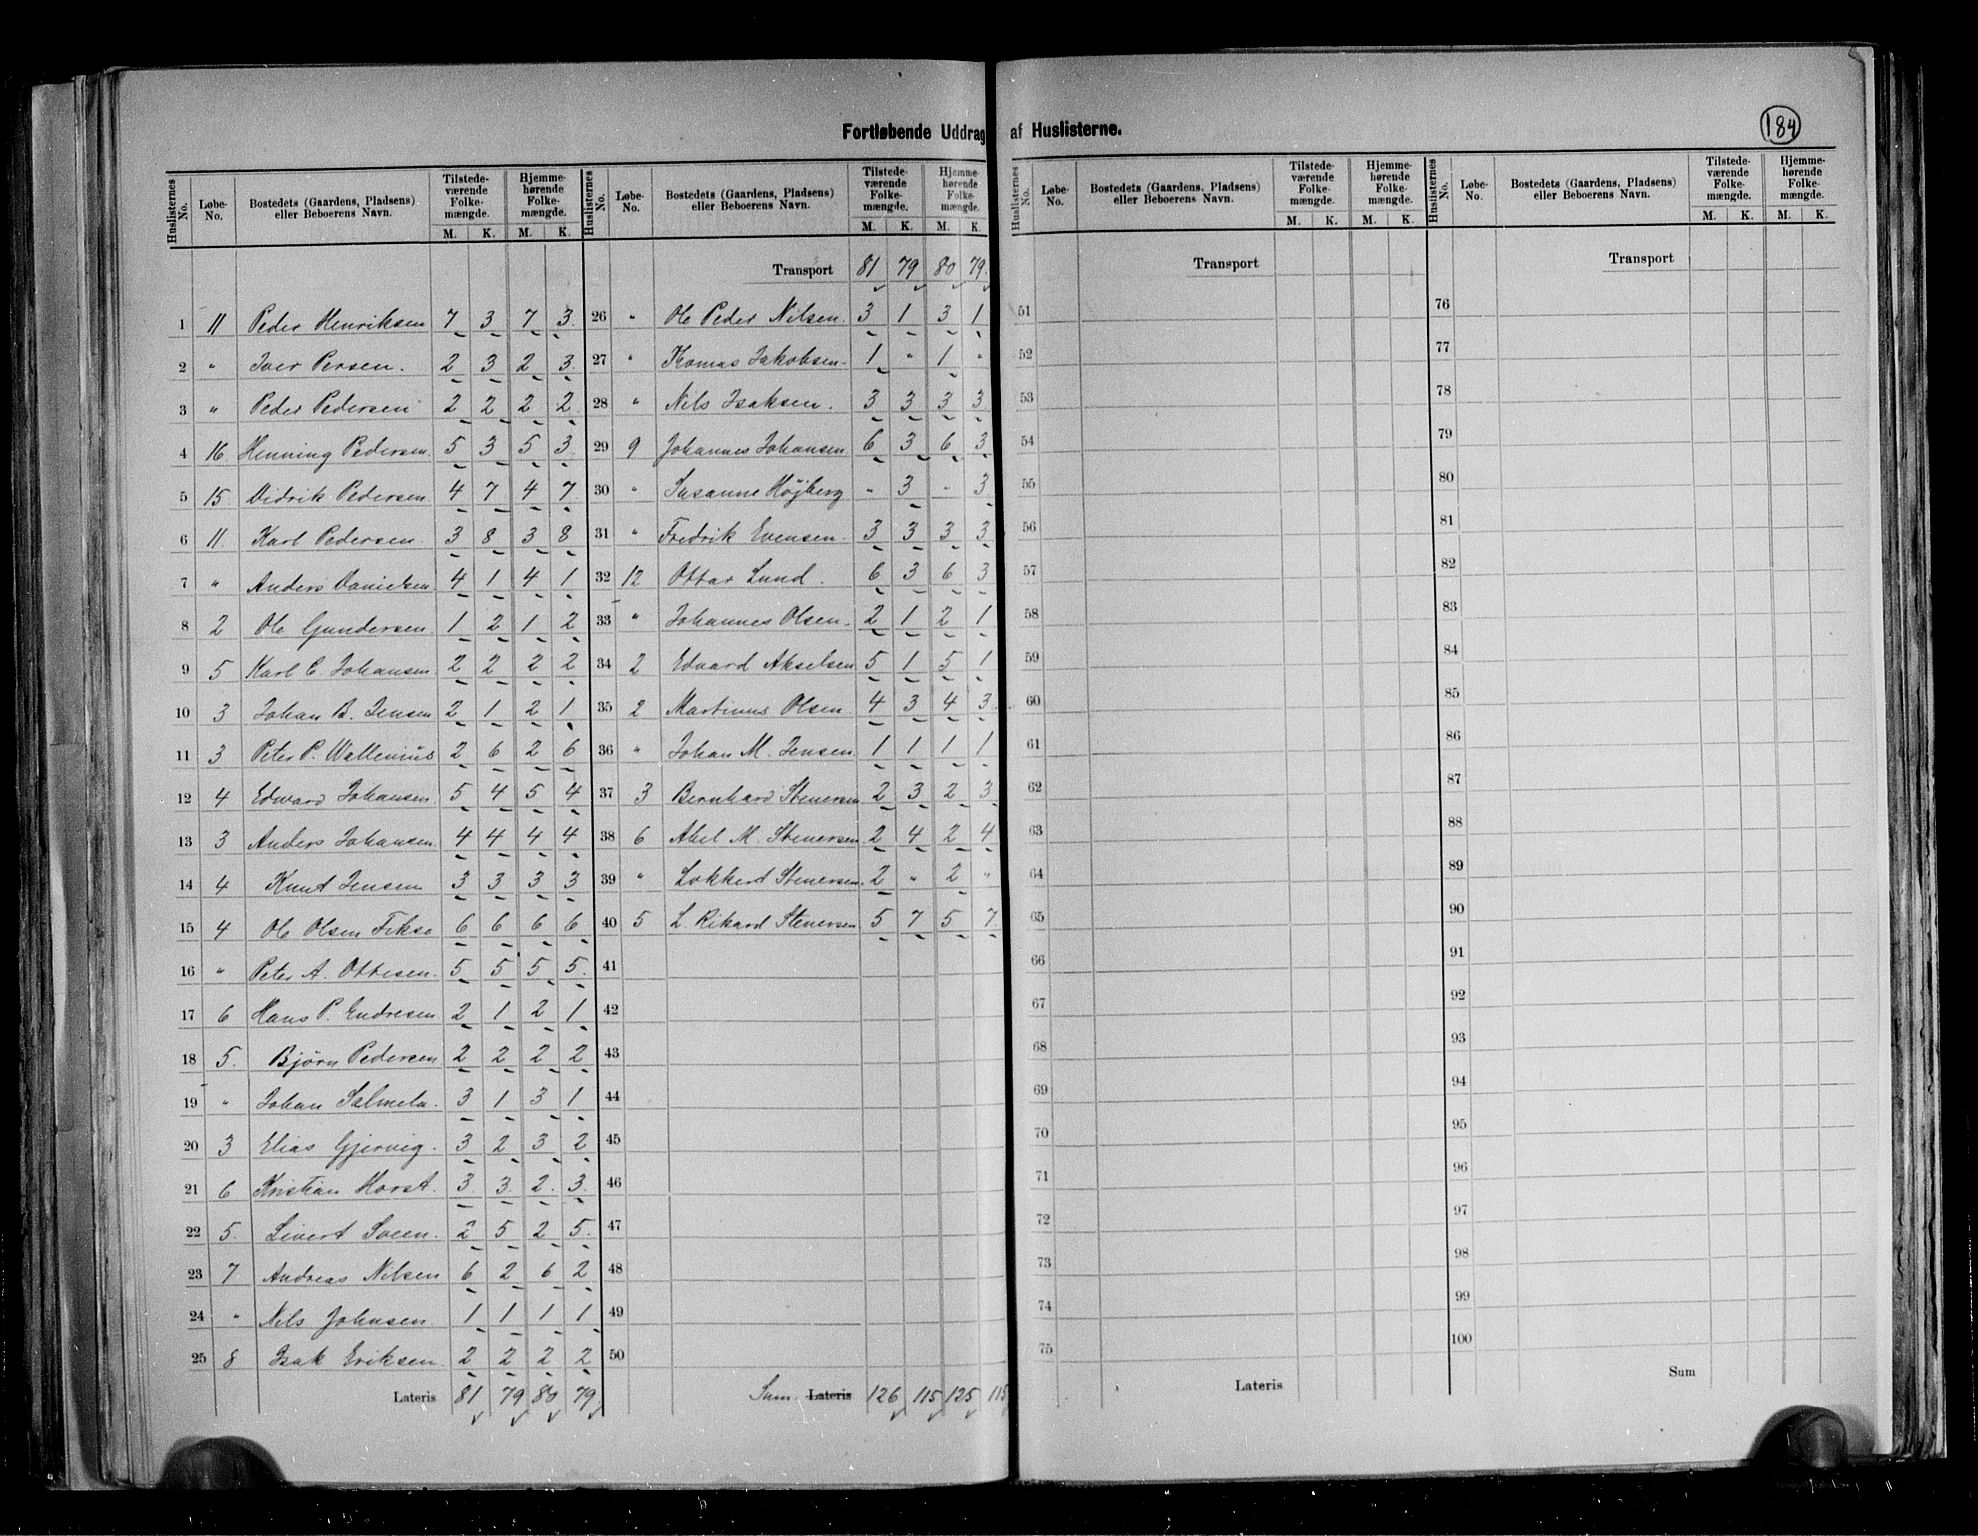 Fortløbende Uddrag af Huslisterne.
184
Huslisternes No. | Løbe-No. | Bostedets (Gaardens, Pladsens) eller Beboerens Navn. | Tilstedeværende Folkemængde. M. K. | Hjemmehørende Folkemængde. M. K.
1 11 Peder Henriksen 7 3 7 3
2 " Iver Persen. 2 3 2 3
3 " Peder Pedersen 2 2 2 2
4 16 Henning Pedersen 5 3 5 3
5 15 Didrik Pedersen 4 7 4 7
6 11 Karl Pedersen 3 8 3 8
7 " Anders Danielsen 4 1 4 1
8 2 Ole Gundersen 1 2 1 2
9 5 Karl C. Johansen 2 2 2 2
10 3 Johan B. Jensen 2 1 2 1
11 3 Peter P. Wallenius 2 6 2 6
12 4 Edward Johansen 5 4 5 4
13 3 Anders Johansen 4 4 4 4
14 4 Knut Jensen 3 3 3 3
15 4 Ole Olsen Fiksе 6 6 6 6
16 " Peter A. Ottesen. 5 5 5 5
17 6 Hans P. Endresen 2 1 2 1
18 5. Bjørn Pedersen 2 2 2 2
19 " Johan Salmela 3 1 3 1
20 3 Elias Gjervig. 3 2 3 2
21 6 Kristian Horst. 3 3 2 3
22 5. Sivert Soeen. 2 5 2 5
23 7 Andreas Nilsen 6 2 6 2
24 " Nils Johnsen 1 1 1 1
25 8 Isak Eriksen 2 2 2 2
Lateris 81 79 80 79
Huslisternes No. | Løbe-No. | Bostedets (Gaardens, Pladsens) eller Beboerens Navn. | Tilstedeværende Folkemængde. M. K. | Hjemmehørende Folkemængde. M. K.
Transport 81 79 80 79
26 " Ole Peder Nilsen 3 1 3 1
27 " Thomas Jakobsen 1 " 1 "
28 " Nils Isaksen. 3 3 3 3
29 9 Johannes Johansen 6 3 6 3
30 " Susanne Höjberg " 3 " 3
31 " Fredrik Evensen 3 3 3 3
32 12 Ottar Lund. 6 3 6 3
33 " Johannes Olsen 2 1 2 1
34 2 Edvard Akselsen 5 1 5 1
35 2 Martinus Olsen 4 3 4 3
36 " Johan M. Jensen 1 1 1 1
37 3 Bernhard Stenersen 2 3 2 3
38 6 Abel M. Stenersen 2 4 2 4
39 " Lokkert Stenersen. 2 " 2 "
40 5 L. Rikard Stenersen 5 7 5 7
41
42
43
44
45
46
47
48
49
50
Sum Lateris 126 115 125 115
Huslisternes No. | Løbe-No. | Bostedets (Gaardens, Pladsens) eller Beboerens Navn. | Tilstedeværende Folkemængde. M. K. | Hjemmehørende Folkemængde. M. K.
Transport
51
52
53
54
55
56
57
58
59
60
61
62
63
64
65
66
67
68
69
70
71
72
73
74
75
Lateris
Huslisternes No. | Løbe-No. | Bostedets (Gaardens, Pladsens) eller Beboerens Navn. | Tilstedeværende Folkemængde. M. K. | Hjemmehørende Folkemængde. M. K.
Transport
76
77
78
79
80
81
82
83
84
85
86
87
88
89
90
91
92
93
94
95
96
97
98
99
100
Sum